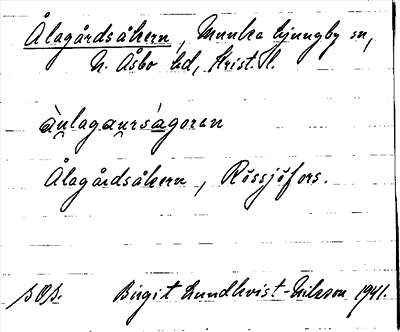 Ålagårdsåkern, Munka Ljungby sn,
N. Åsbo hd, Krist. l.
àulagaursågoren
Ålagårdsåkern, Rössjöfors.
Birgit Lundkvist-Nilsson 1941.